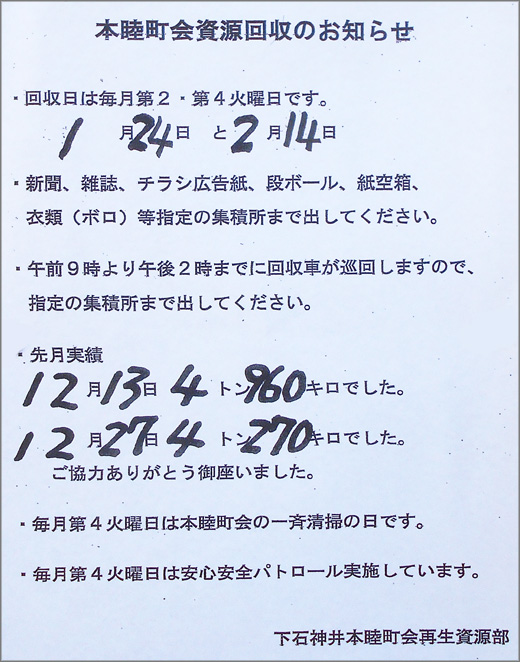 本睦町会資源回収のお知らせ
・回収日は毎月第２・第４火曜日です。
1月24日 と 2月14日
・新聞、雑誌、チラシ広告紙、段ボール、紙空箱、
衣類（ボロ）等指定の集積所まで出してください。
・午前９時より午後２時までに回収車が巡回しますので、
指定の集積所まで出してください。
・先月実績
12月13日 4トン960キロでした。
12月27日 4トン270キロでした。
ご協力ありがとう御座いました。
・毎月第４火曜日は本睦町会の一斉清掃の日です。
・毎月第４火曜日は安心安全パトロール実施しています。
下石神井本睦町会再生資源部